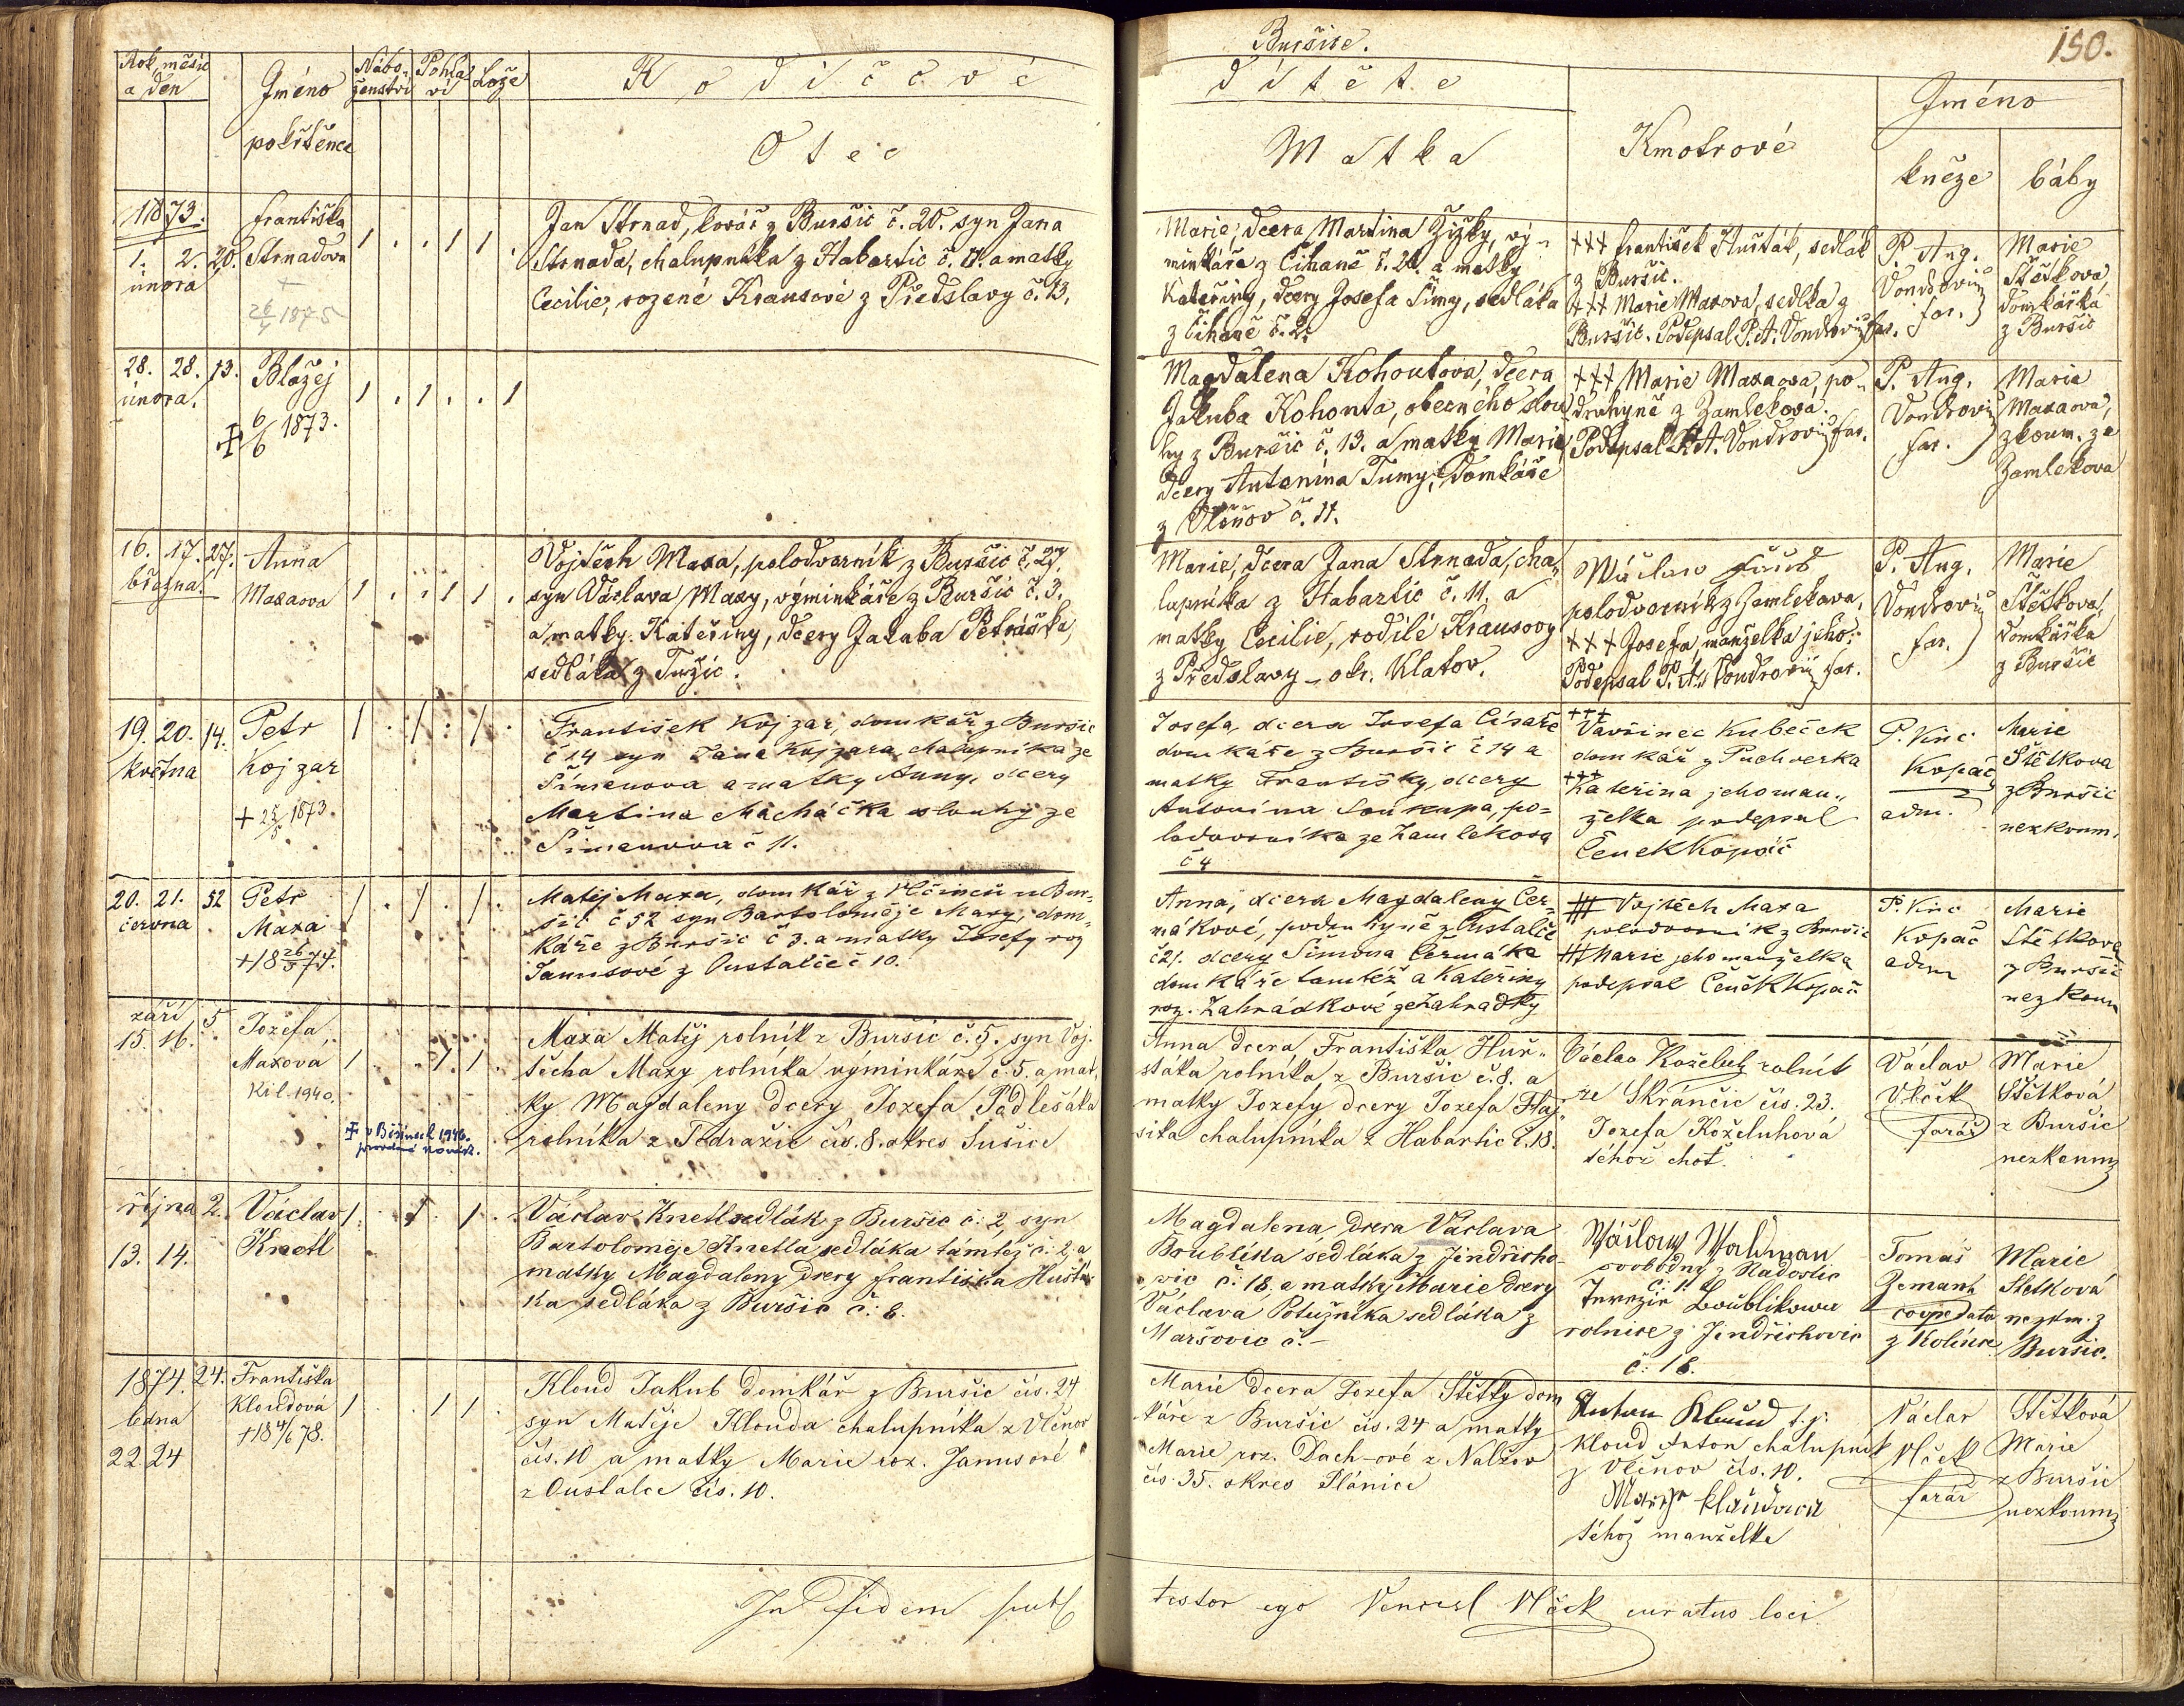 Buršice.
150.
Rok, měsíc
a den
Jméno
pokřtěnce
Nábo-
ženství
Pohla-
ví
Lože
Rodičové
Otec
dítěte
Matka
Kmotrové
Jméno
kněze
báby
1873.
1. 2. 20.
února
Františka
Strnadova
+
26/4 1875
1 . . 1 1 .
Jan Strnad, kovář z Buršic č. 20. syn Jana
Strnada, chalupníka z Habartic č. 11. a matky
Cecilie, rozené Krausové z Předslavy č. 13.
Marie, dcera Martina Žižky, vý-
minkáře z Čihaně č. 21. a matky
Kateřiny, dcery Josefa Šimy, sedláka
z Čihaně č. 2.
+++ František Husták, sedlák
z Buršic.
+++ Marie Maxova, sedlka z
Buršic. Podepsal P. A. Vondrovic far.
P. Aug.
Vondrovic
far.
Marie
Štětkova,
domkářka
z Buršic
28. 28. 13.
února.
Blažej
+ 6/6 1873.
1 . 1 . . 1
Magdalena Kohoutova, dcera
Jakuba Kohouta, obecného slou
hy z Buršic č. 13. a matky Marie,
dcery Antonína Tumy, domkáře
z Vlčnov č. 11.
+++ Marie Maxaova, po-
druhyně z Zamlekova.
Podepsal P. A. Vondrovic far.
P. Aug.
Vondrovic
far.
Marie
Maxaova,
zkoum. ze
Zamlekova
16. 17. 27.
března.
Anna
Maxaova
1 . . 1 1 .
Vojtěch Maxa, polodvorník z Buršic č. 27.
syn Václava Maxy, výminkáře z Buršic č. 3.
a matky Kateřiny, dcery Jakuba Petráška,
sedláka z Tužic.
Marie, dcera Jana Strnada, cha-
lupníka z Habartic č. 11. a
matky Cecilie, rodilé Krausovy
z Předslavy - okr. Klatov.
Wáclaw
polodvorník z Zamlekova,
+++ Josefa, manželka jeho.
Podepsal P. A. Vondrovic far.
P. Aug.
Vondrovic
far.
Marie
Štětkova,
domkářka
z Buršic
19. 20. 14.
května
Petr
Kojzar
+ 25/5 1873.
1 . 1 . 1 .
František Kojzar, domkář z Buršic
č 14 syn Jana Kojzara chalupníka ze
Šimenova a matky Anny, dcery
Martina Macháčka slouhy ze
Šimenova č 11.
Josefa, dcera Josefa Císaře
domkáře z Buršic č 14 a
matky Františky, dcery
Antonína Soukupa, po=
lodvorníka ze Zamlekova
č 4
+++
Vavřinec Kubeček
domkář z Puchverka
+++
Kateřina jeho man-
želka podepsal
Čeněk Kopáč
P. Vinc.
Kopáč
adm.
Marie
Štětkova
z Buršic
nezkoum.
20. 21. 52
června
Petr
Maxa
+18 26/5 74.
1 . 1 . 1 .
Matěj Maxa, domkář z Vlčinců u Bur-
šic č 52 syn Bartoloměje Maxy, dom-
káře z Buršic č 3. a matky Josefy roz
Janusové z Oustalče č 10.
Anna, dcera Magdaleny Čer-
mákové, podruhyně z Oustalče
č 21. dcery Šimona Čermáka
domkáře tamtéž a Kateřiny
roz. Zahrádkové ze Zahradky
+++ Vojtěch Maxa
polodvorník z Buršic
+++ Marie jeho manželka
podepsal Čeněk Kopáč
P. Vinc
Kopáč
adm
Marie
Štětkova
z Buršic
nezkoum
září 5
15. 16.
Jozefa
Maxova
Kil. 1940.
1 . . 1 1
+ v Běšinech 1946.
Maxa Matěj rolník z Buršic č. 5. syn Voj-
těcha Maxy rolníka výminkáře č. 5. a mat-
ky Magdaleny dcery Jozefa Padlešáka
rolníka z Podražic čís. 8. okres Sušice
Anna dcera Františka Huš-
stáka rolníka z Buršic č. 8. a
matky Jozefy dcery Jozefa Haj-
síka chalupníka z Habartic č. 18.
Václav Koželuh rolník
ze Skránčic čís. 23.
Jozefa Koželuhová
téhož choť.
Václav
Vlček
farář
Marie
Štětková
z Buršic
nezkoum
října 2.
13. 14.
Václav
Knetl
1 . 1 . 1 .
Václav Knetl sedlák z Buršic č: 2, syn
Bartoloměje Knetla sedláka támtéž č: 2, a
matky Magdaleny dcery Františka Hustá-
ka sedláka z Buršic č: 8.
Magdalena, dcera Václava
Boublíka sedláka z Jindřicho-
vic č: 18. a matky Marie dcery
Václava Potužníka sedláka z
Maršovic č. -
Wáclaw Waldman
svobodný z Nadoslic
č: 1.
Terezie Boublikowa
rolnice z Jindřichovic
č: 18.
Tomáš
Zemant
cooperator
z Kolince
Marie
Stetková
nezkm. z
Buršic.
1874. 24.
ledna
22. 24
Františka
Kloudová
+18 4/6 78.
1 . . 1 1 .
Kloud Jakub domkář z Buršic čís. 24
syn Matěje Klouda chalupníka z Vlčnov
čís. 10 a matky Marie roz. Janusové
z Oustalce čís. 10.
Marie dcera Jozefa Štětky dom
káře z Buršic čís. 24 a matky
Marie roz. Dach-ové z Nalžov
čís. 35. okres Plánice
Anton Kloud
Kloud Anton chalupník
z Vlčnov čís. 10.
Marye Klaudowa
téhož manželka
Václav
Vlček
farář
Štětková
Marie
z Buršic
nezkoum
In fidem
testor ego Vencesl Vlček curatus loci